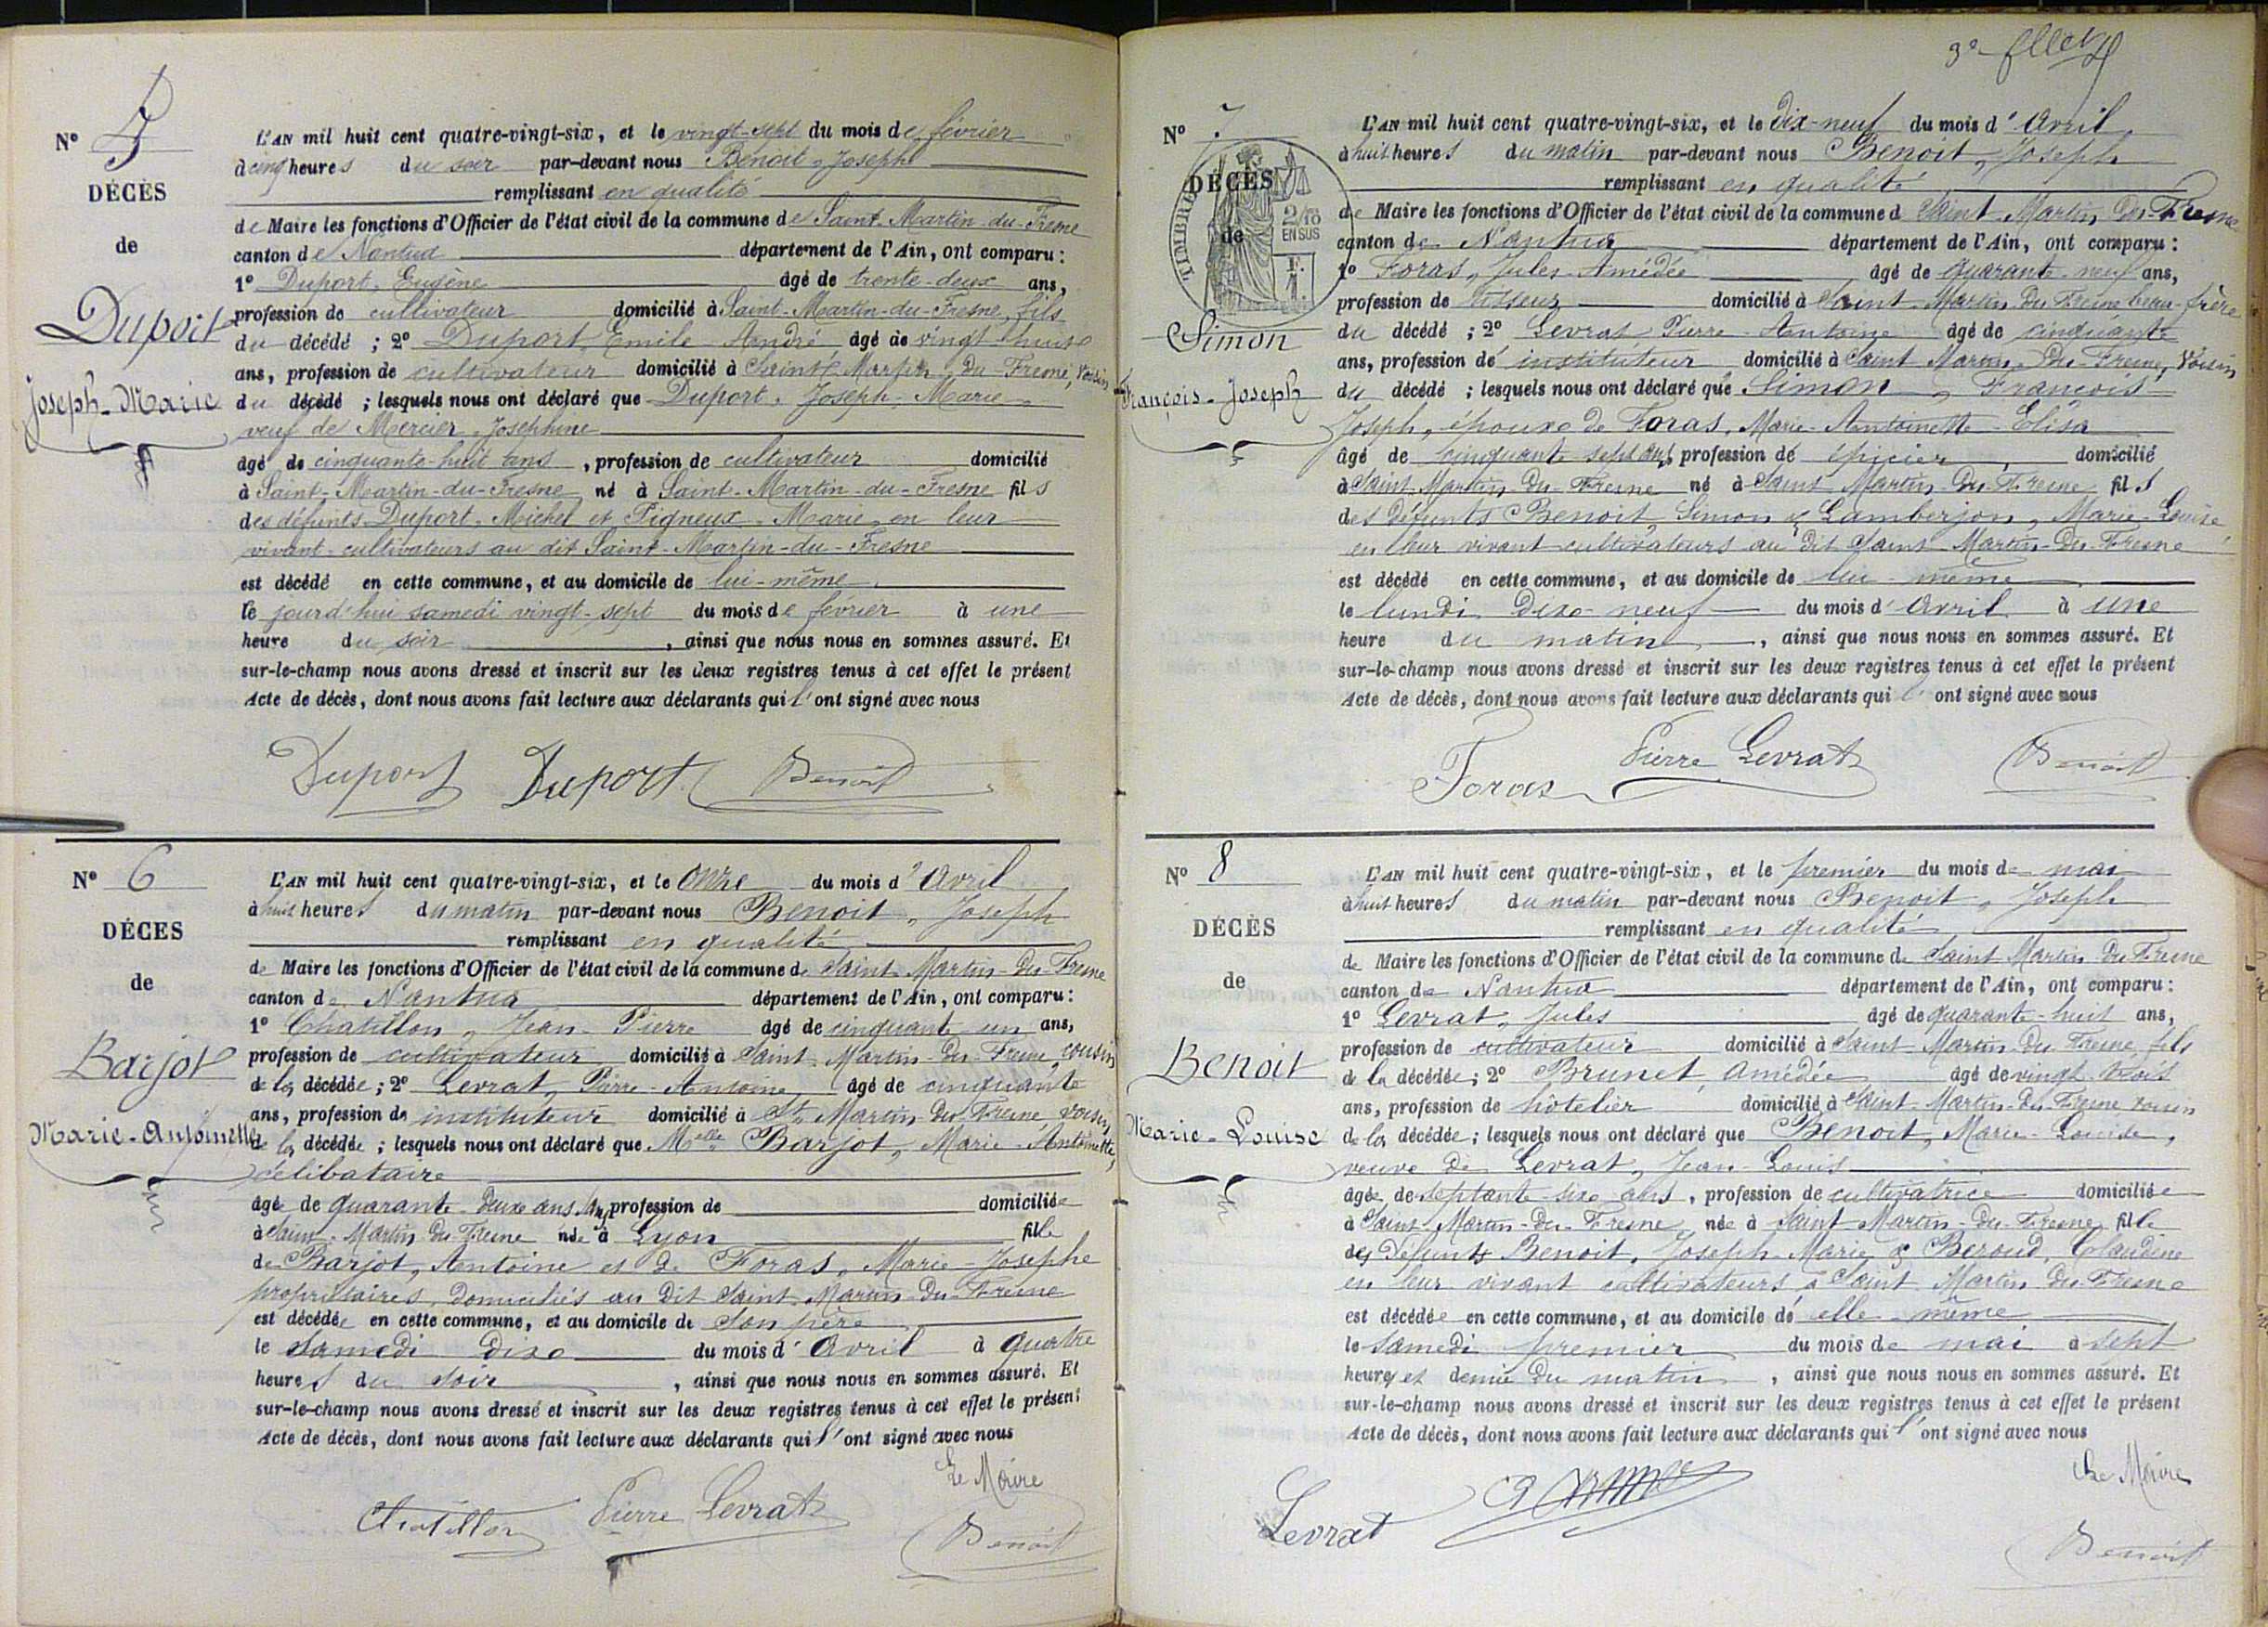 Nº 5
DÉCÈS
de
Duport
Joseph-Marie
L'AN mil huit cent quatre-vingt-six, et le vingt-sept du mois de février
à cinq heures du soir par-devant nous Benoit, Joseph
remplissant en qualité
de Maire les fonctions d'Officier de l'état civil de la commune de Saint-Martin-du-Fresne
canton de Nantua département de l'Ain, ont comparu :
1º Duport, Eugène âgé de trente-deux ans,
profession de cultivateur domicilié à Saint-Martin-du-Fresne, fils
du décédé ; 2º Duport, Emile-André âgé de vingt-huit
ans, profession de cultivateur domicilié à Saint-Martin-Du-Fresne, voisin
du décédé ; lesquels nous ont déclaré que Duport, Joseph-Marie
veuf de Mercier, Joséphine
âgé de cinquante-huit ans, profession de cultivateur domicilié
à Saint-Martin-du-Fresne, né à Saint-Martin-du-Fresne fils
des défunts Duport, Michel et Pigneux, Marie, en leur
vivant cultivateurs au dit Saint-Martin-du-Fresne
est décédé en cette commune, et au domicile de lui-même
le jourd'hui samedi vingt-sept du mois de février à une
heure du soir, ainsi que nous nous en sommes assuré. Et
sur-le-champ nous avons dressé et inscrit sur les deux registres tenus à cet effet le présent
Acte de décès, dont nous avons fait lecture aux déclarants qui l'ont signé avec nous
Duport Duport Benoit
Nº 6
DÉCES
de
Barjot
Marie-Antoinette
L'AN mil huit cent quatre-vingt-six, et le Onze du mois d'Avril
à huit heures du matin par-devant nous Benoit, Joseph
remplissant en qualité
de Maire les fonctions d'Officier de l'état civil de la commune de Saint-Martin-Du-Fresne
canton de Nantua département de l'Ain, ont comparu :
1º Chatillon, Jean-Pierre âgé de cinquante-un ans,
profession de cultivateur domicilié à Saint-Martin-Du-Fresne, cousin
de la décédée ; 2º Levrat, Pierre-Antoine âgé de cinquante
ans, profession de instituteur domicilié à St Martin-Du-Fresne, voisin
de la décédée ; lesquels nous ont déclaré que Melle Barjot, Marie-Antoinette,
célibataire
âgée de quarante-deux ans, profession de domiciliée
à Saint-Martin-Du-Fresne née à Lyon fille
de Barjot, Antoine et de Foras, Marie-Josephe
propriétaires, domiciliés au dit Saint-Martin-Du-Fresne
est décédée en cette commune, et au domicile de son père
le Samedi dix du mois d'Avril à quatre
heures du soir, ainsi que nous nous en sommes assuré. Et
sur-le-champ nous avons dressé et inscrit sur les deux registres tenus à cet effet le présent
Acte de décès, dont nous avons fait lecture aux déclarants qui l'ont signé avec nous
Le Maire
Chatillon Pierre Levrat Benoit
Nº 7
DÉCÈS
de
TIMBRE
2/10
EN SUS
Simon
François-Joseph
L'AN mil huit cent quatre-vingt-six, et le Dix-neuf du mois d'Avril
à huit heures du matin par-devant nous Benoit, Joseph
remplissant en qualité
de Maire les fonctions d'Officier de l'état civil de la commune de Saint-Martin-Du-Fresne
canton de Nantua département de l'Ain, ont comparu :
1º Foras, Jules-Amédée âgé de quarante-neuf ans,
profession de tisseur domicilié à Saint-Martin-Du-Fresne beau-frère
du décédé ; 2º Levrat, Pierre-Antoine âgé de cinquante
ans, profession de instituteur domicilié à Saint-Martin-Du-Fresne, Voisin
du décédé ; lesquels nous ont déclaré que Simon, François
Joseph, époux de Foras, Marie-Antoinette-Elisa
âgé de cinquante-sept ans, profession de épicier, domicilié
à Saint-Martin-Du-Fresne né à Saint-Martin-Du-Fresne fils
des Défunts Benoit, Simon & Lamberjon, Marie-Louise
en leur vivant cultivateurs au dit Saint-Martin-Du-Fresne
est décédé en cette commune, et au domicile de lui-même
le lundi dix-neuf du mois d'Avril à une
heure du matin, ainsi que nous nous en sommes assuré. Et
sur-le-champ nous avons dressé et inscrit sur les deux registres tenus à cet effet le présent
Acte de décès, dont nous avons fait lecture aux déclarants qui l'ont signé avec nous
Foras Pierre Levrat Benoit
Nº 8
DÉCÈS
de
Benoit
Marie-Louise
L'AN mil huit cent quatre-vingt-six, et le premier du mois de mai
à huit heures du matin par-devant nous Benoit, Joseph
remplissant en qualité
de Maire les fonctions d'Officier de l'état civil de la commune de Saint Martin Du Fresne
canton de Nantua département de l'Ain, ont comparu :
1º Levrat, Jules âgé de quarante-huit ans,
profession de cultivateur domicilié à Saint-Martin-Du-Fresne, fils
de la décédée ; 2º Brunet, Amédée âgé de vingt-trois
ans, profession de hôtelier domicilié à Saint-Martin-Du-Fresne, voisin
de la décédée ; lesquels nous ont déclaré que Benoit, Marie-Louise,
veuve de Levrat, Jean-Louis
âgée de septante-six ans, profession de cultivatrice domiciliée
à Saint-Martin-Du-Fresne, née à Saint Martin-Du-Fresne, fille
des Défunts Benoit, Joseph-Marie & Beroud, Claudine
en leur vivant cultivateurs à Saint-Martin-Du-Fresne
est décédée en cette commune, et au domicile de elle-même
le samedi premier du mois de mai à sept
heures et demie du matin, ainsi que nous nous en sommes assuré. Et
sur-le-champ nous avons dressé et inscrit sur les deux registres tenus à cet effet le présent
Acte de décès, dont nous avons fait lecture aux déclarants qui l'ont signé avec nous
Le Maire
Levrat Benoit